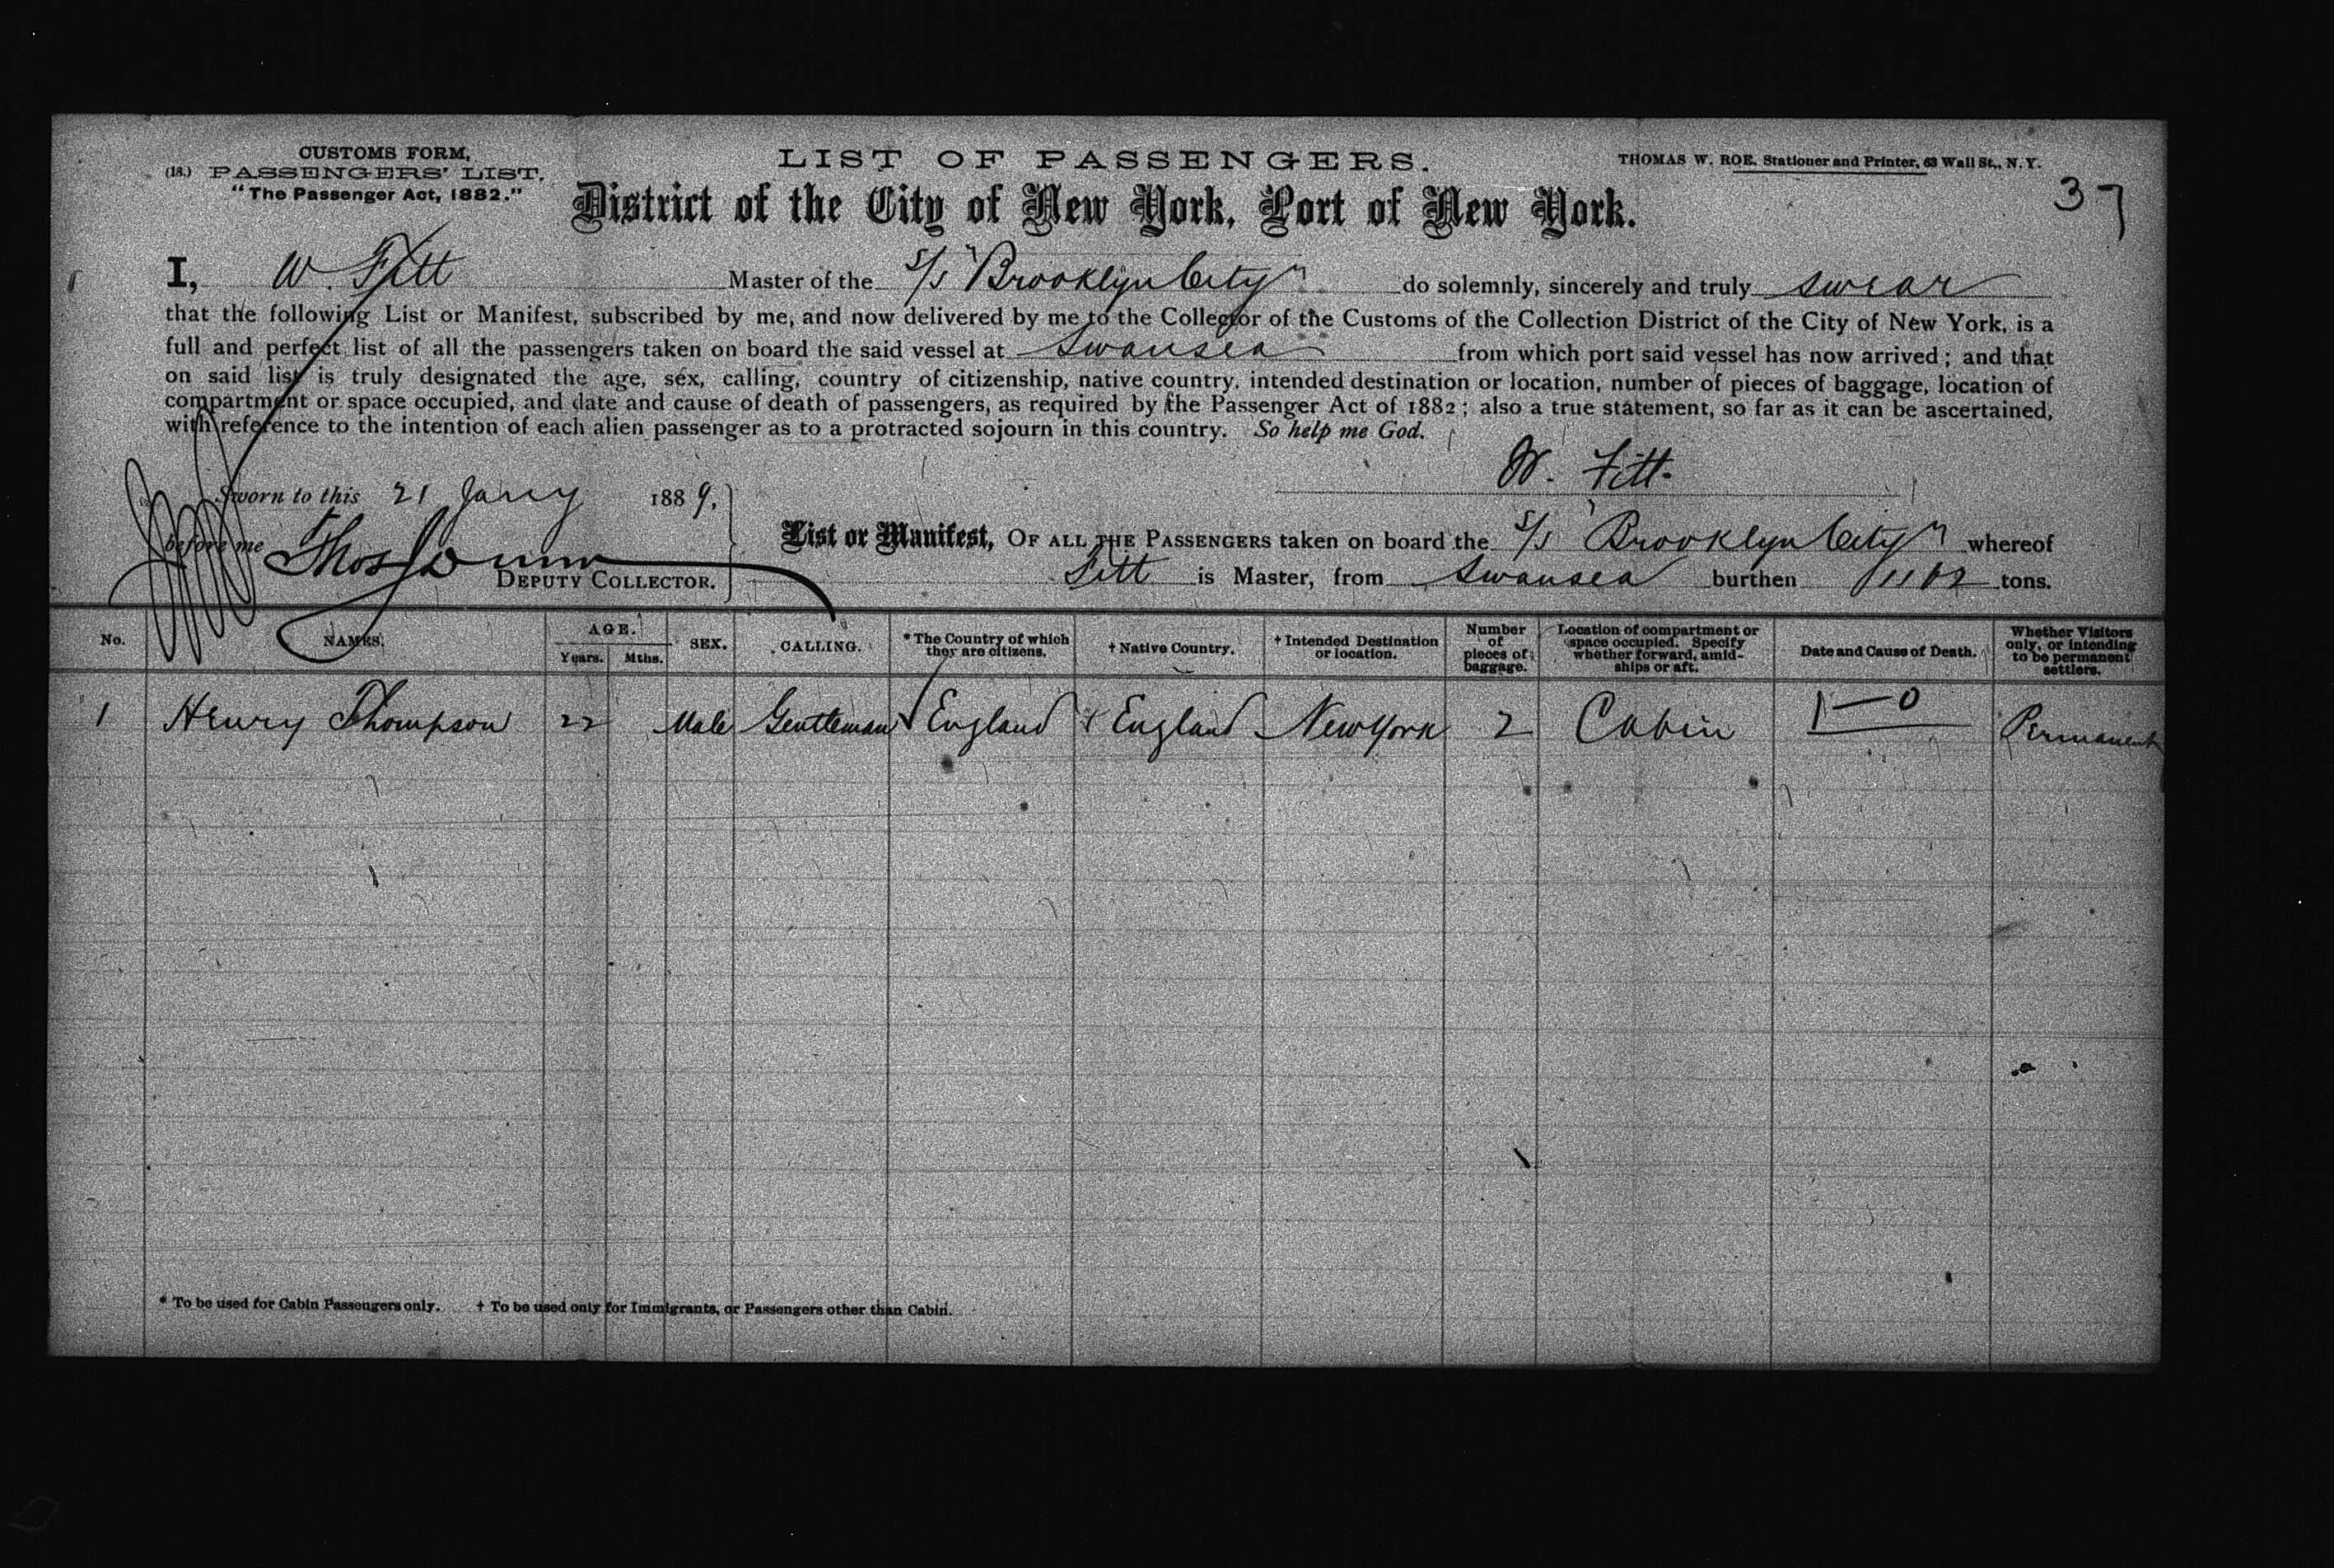 CUSTOMS FORM,
(18.) PASSENGERS' LIST.
"The Passenger Act, 1882."
LIST OF PASSENGERS.
THOMAS W. ROE, Stationer and Printer, 63 Wall St., N. Y.
37
District of the City of New York, Port of New York.
I, W. Fitt Master of the S/S "Brooklyn City" do solemnly, sincerely and truly swear
that the following List or Manifest, subscribed by me, and now delivered by me to the Collector of the Customs of the Collection District of the City of New York, is a
full and perfect list of all the passengers taken on board the said vessel at Swansea from which port said vessel has now arrived; and that
on said list is truly designated the age, sex, calling, country of citizenship, native country, intended destination or location, number of pieces of baggage, location of
compartment or space occupied, and date and cause of death of passengers, as required by the Passenger Act of 1882; also a true statement, so far as it can be ascertained,
with reference to the intention of each alien passenger as to a protracted sojourn in this country. So help me God.
W. Fitt
Sworn to this 21 Jany 1889,
before me Thos
DEPUTY COLLECTOR.
List or Manifest, OF ALL THE PASSENGERS taken on board the S/S "Brooklyn City" whereof
Fitt is Master, from Swansea burthen tons.
No. NAMES. AGE. Years. Mths. SEX. CALLING. * The Country of which they are citizens. † Native Country. † Intended Destination or location. Number of pieces of baggage. Location of compartment or space occupied. Specify whether forward, amidships or aft. Date and Cause of Death. Whether Visitors only, or intending to be permanent settlers.
1 Henry Thompson 22 Male Gentleman England England New York 2 Cabin 1—0 Permanent
* To be used for Cabin Passengers only. † To be used only for Immigrants, or Passengers other than Cabin.